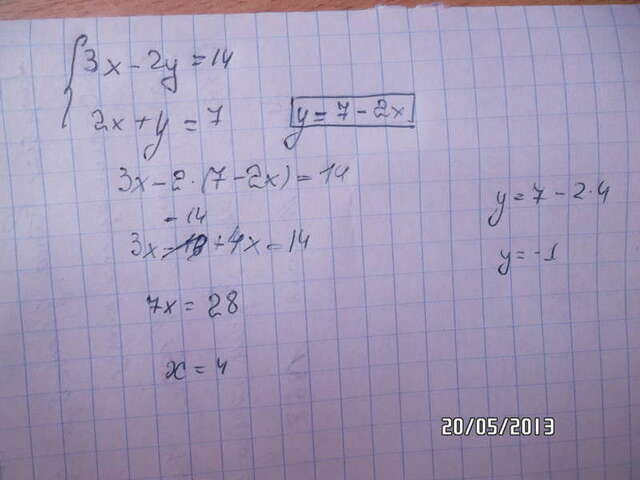 3x - 2y = 14
2x + y = 7
y = 7 - 2x
3x - 2 · (7 - 2x) = 14
- 14
3x + 4x = 14
7x = 28
x = 4
y = 7 - 2·4
y = -1
20/05/2013